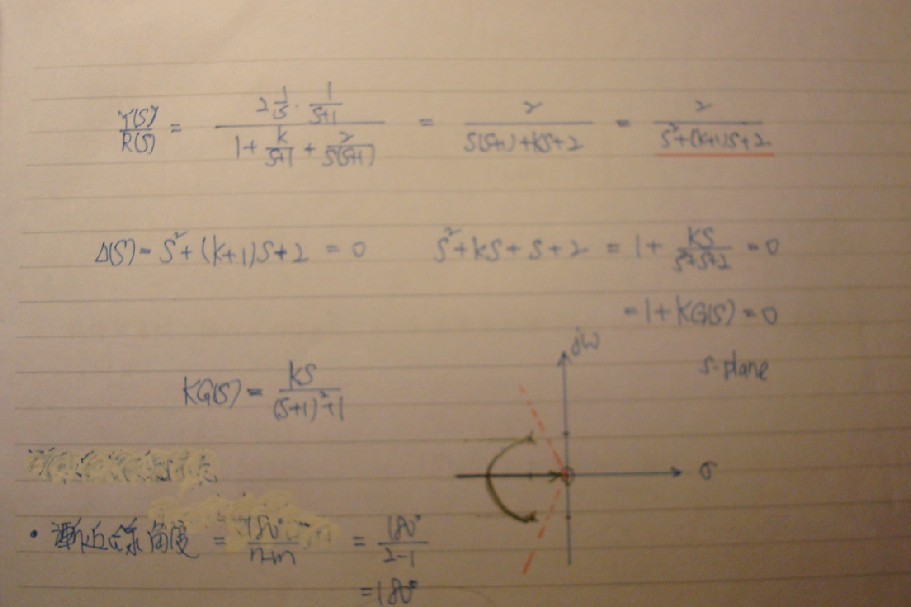 Y(S)/R(S) = (2 1/S · 1/(S+1)) / (1 + K/(S+1) + 2/(S(S+1))) = 2/(S(S+1)+KS+2) = 2/(S²+(K+1)S+2)
Δ(S) = S²+(K+1)S+2 = 0 S²+KS+S+2 = 1+ KS/(S²+S+2) = 0
= 1+KG(S) = 0
jω
S-plane
KG(S) = KS/((S+1)²+1)
σ
• 漸近線角度 = 180°/(n-m) = 180°/(2-1)
= 180°